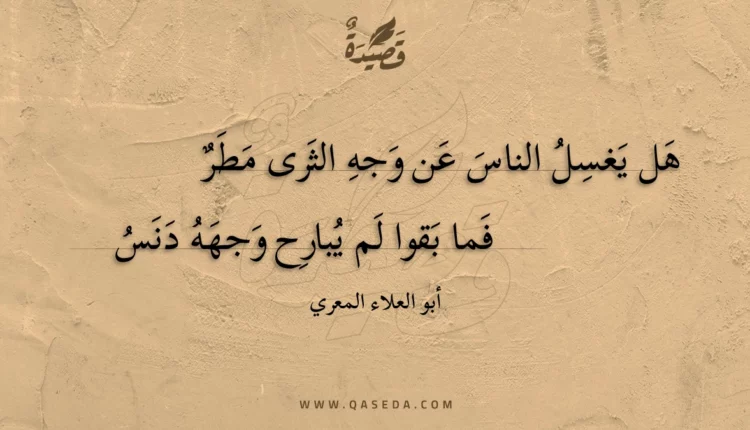 قَصِيْدَةٌ
هَل يَغسِلُ الناسَ عَن وَجهِ الثَرى مَطَرٌ
فَما بَقوا لَم يُبارِح وَجهَهُ دَنَسُ
أبو العلاء المعري
WWW.QASEDA.COM